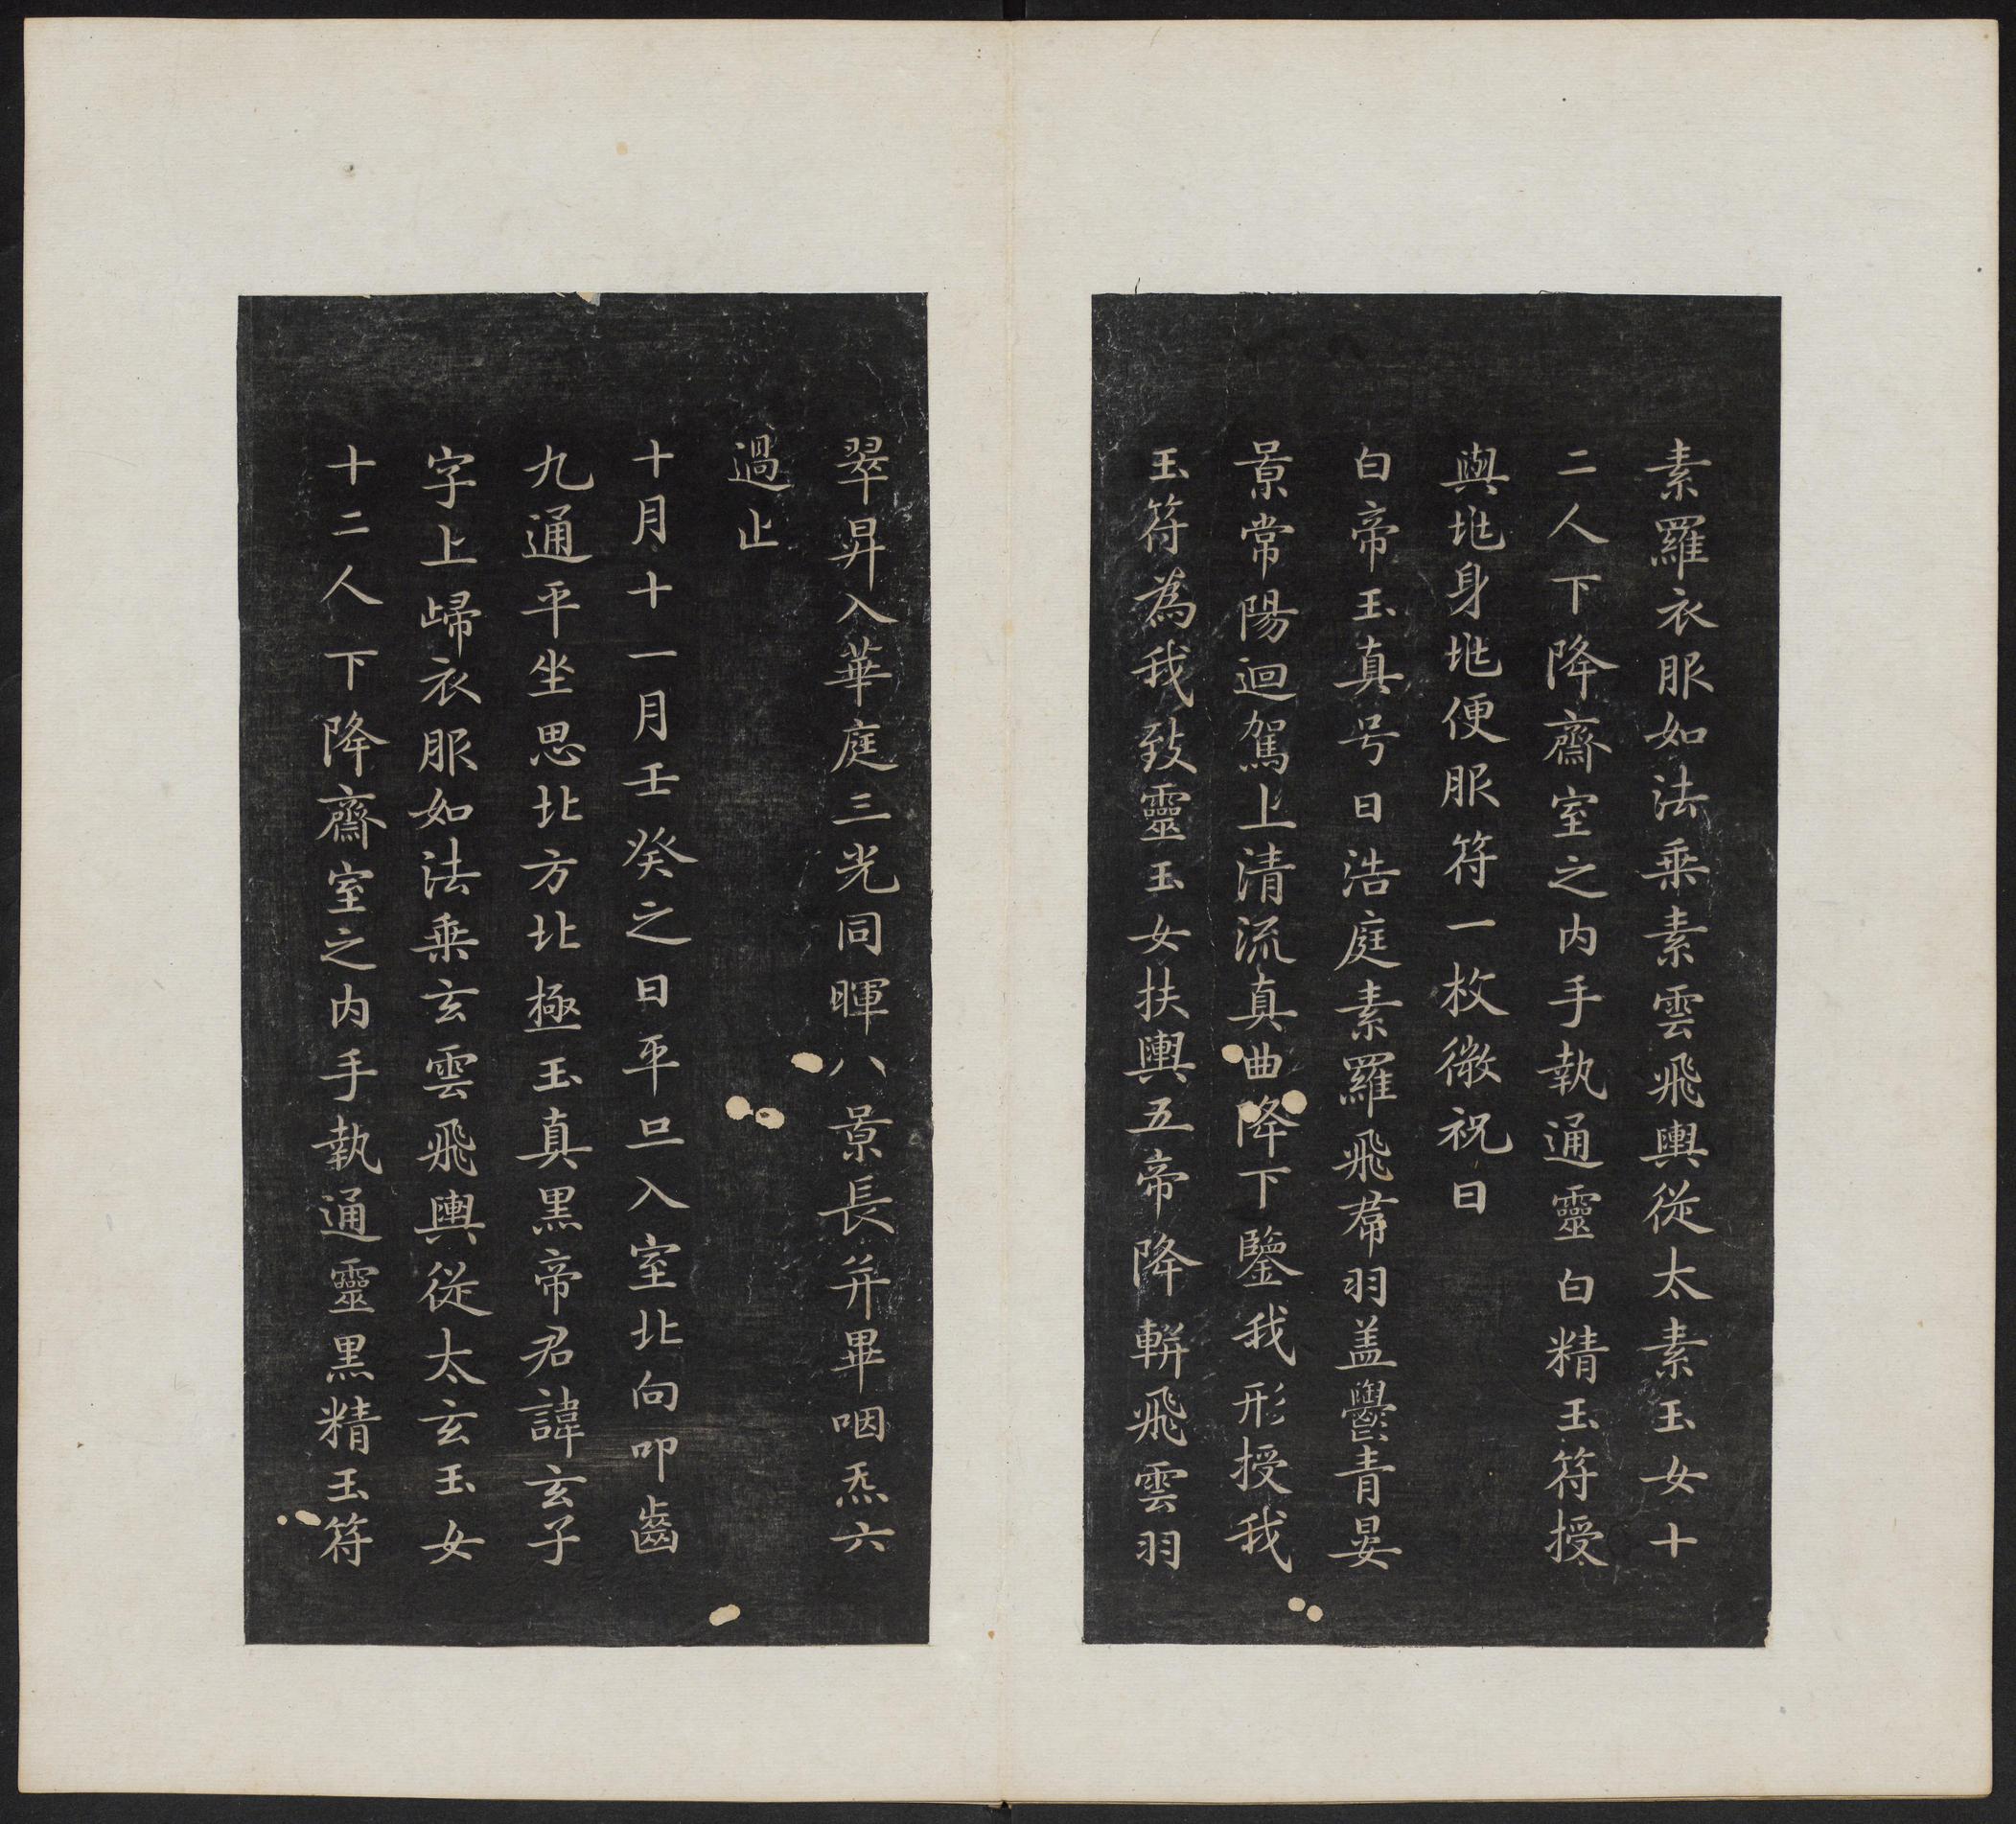 素羅衣服如法乗素雲飛輿従太素玉女十
二人下降齋室之内手執通靈白精玉符授
與兆身兆便服符一枚微祝曰
白帝玉真号曰浩庭素羅飛帬羽盖鬱青晏
景常陽迴駕上清流真曲降下鑒我形授我
玉符為我致靈玉女扶輿五帝降軿飛雲羽
翠昇入華庭三光同暉八景長并畢咽炁六
過止
十月十一月壬癸之日平旦入室北向叩齒
九通平坐思北方北極玉真黒帝君諱玄子
字上歸衣服如法乗玄雲飛輿従太玄玉女
十二人下降齋室之内手執通靈黒精玉符